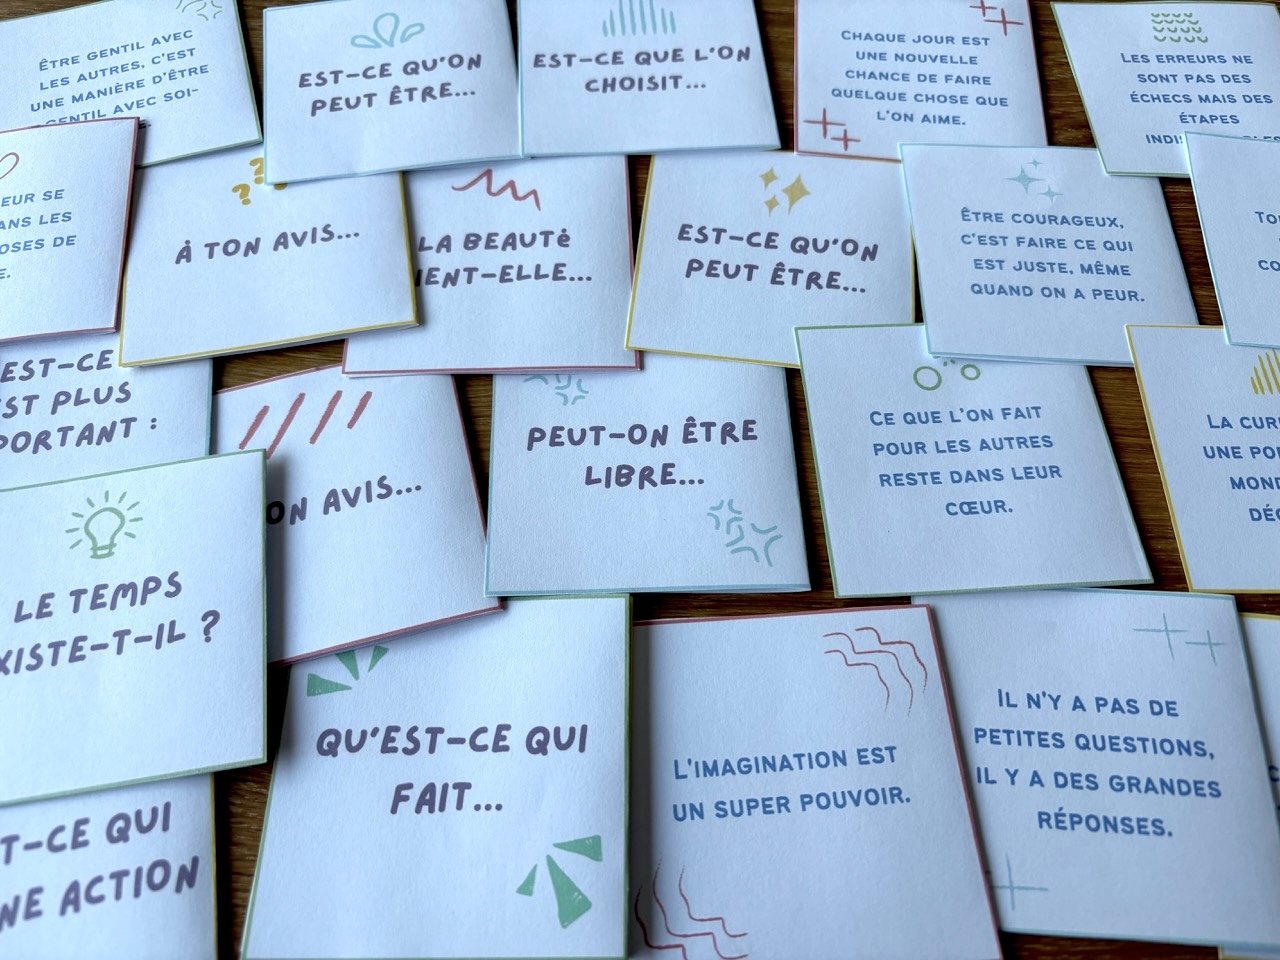 ÊTRE GENTIL AVEC
LES AUTRES, C'EST
UNE MANIÈRE D'ÊTRE
GENTIL AVEC SOI-
EST-CE QU'ON
PEUT ÊTRE...
EST-CE QUE L'ON
CHOISIT...
CHAQUE JOUR EST
UNE NOUVELLE
CHANCE DE FAIRE
QUELQUE CHOSE QUE
L'ON AIME.
LES ERREURS NE
SONT PAS DES
ÉCHECS MAIS DES
ÉTAPES
EUR SE
ANS LES
OSES DE
E.
??
À TON AVIS...
LA BEAUTÉ
IENT-ELLE...
EST-CE QU'ON
PEUT ÊTRE...
ÊTRE COURAGEUX,
C'EST FAIRE CE QUI
EST JUSTE, MÊME
QUAND ON A PEUR.
TO
CO
EST-CE
ST PLUS
PORTANT :
ON AVIS...
PEUT-ON ÊTRE
LIBRE...
CE QUE L'ON FAIT
POUR LES AUTRES
RESTE DANS LEUR
CŒUR.
LA CUR
UNE PO
MOND
DÉC
LE TEMPS
XISTE-T-IL ?
QU'EST-CE QUI
FAIT...
L'IMAGINATION EST
UN SUPER POUVOIR.
IL N'Y A PAS DE
PETITES QUESTIONS,
IL Y A DES GRANDES
RÉPONSES.
T-CE QUI
NE ACTION